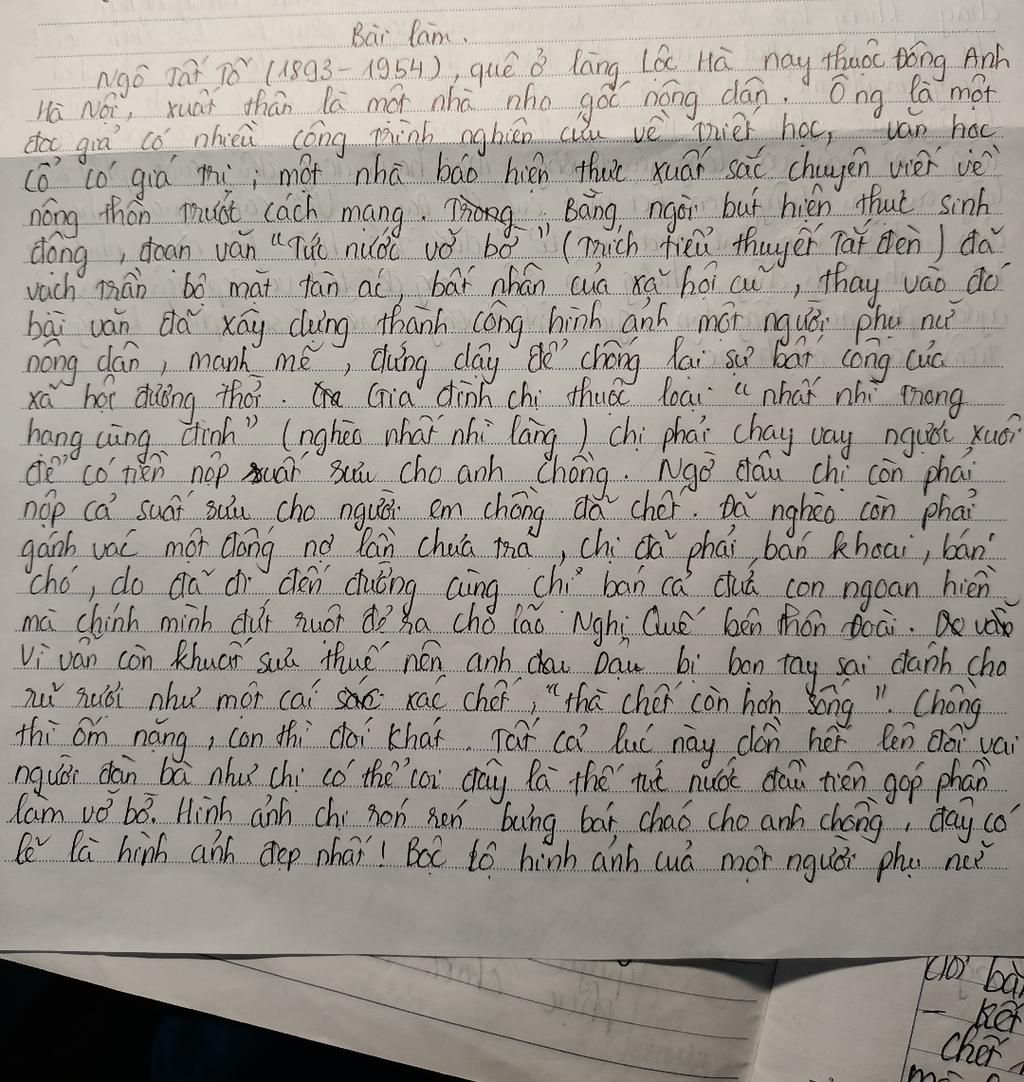 Bài làm.
Ngô Tất Tố (1893 - 1954), quê ở làng Lộc Hà nay thuộc Đông Anh
Hà Nội, xuất thân là một nhà nho gốc nông dân. Ông là một
đọc giả có nhiều công trình nghiên cứu về triết học, văn học
cổ có giá trị; một nhà báo hiện thực xuất sắc chuyên viết về
nông thôn trước cách mạng. Trong Bằng ngòi bút hiện thực sinh
động, đoạn văn "Tức nước vỡ bờ" (Trích tiểu thuyết Tắt đèn) đã
vạch trần bộ mặt tàn ác, bất nhân của xã hội cũ, thay vào đó
bài văn đã xây dựng thành công hình ảnh một người phụ nữ
nông dân, mạnh mẽ, đứng dậy để chống lại sự bất công của
xã hội đương thời. Gia đình chị thuộc loại "nhất nhì trong
hạng cùng đinh" (nghèo nhất nhì làng) chị phải chạy vạy ngược xuôi
để có tiền nộp suất sưu cho anh chồng. Ngờ đâu chị còn phải
nộp cả suất sưu cho người em chồng đã chết. Đã nghèo còn phải
gánh vác một đống nợ lần chưa trả, chị đã phải bán khoai, bán
chó, do đã đi đến đường cùng chị bán cả đứa con ngoan hiền
mà chính mình dứt ruột đẻ ra cho lão Nghị Quế bên thôn Đoài.
Vì vẫn còn khuất sưu thuế nên anh dau Dậu bị bọn tay sai đánh cho
rũ rượi như một cái xác chết, "thà chết còn hơn sống". Chồng
thì ốm nặng, con thì đói khát. Tất cả lúc này dồn hết lên đôi vai
người đàn bà như chị có thể coi đây là thế tức nước đầu tiên góp phần
làm vỡ bờ. Hình ảnh chị rón rén bưng bát cháo cho anh chồng, đây có
lẽ là hình ảnh đẹp nhất! Bộc lộ hình ảnh của một người phụ nữ
bài
- Kết
chết